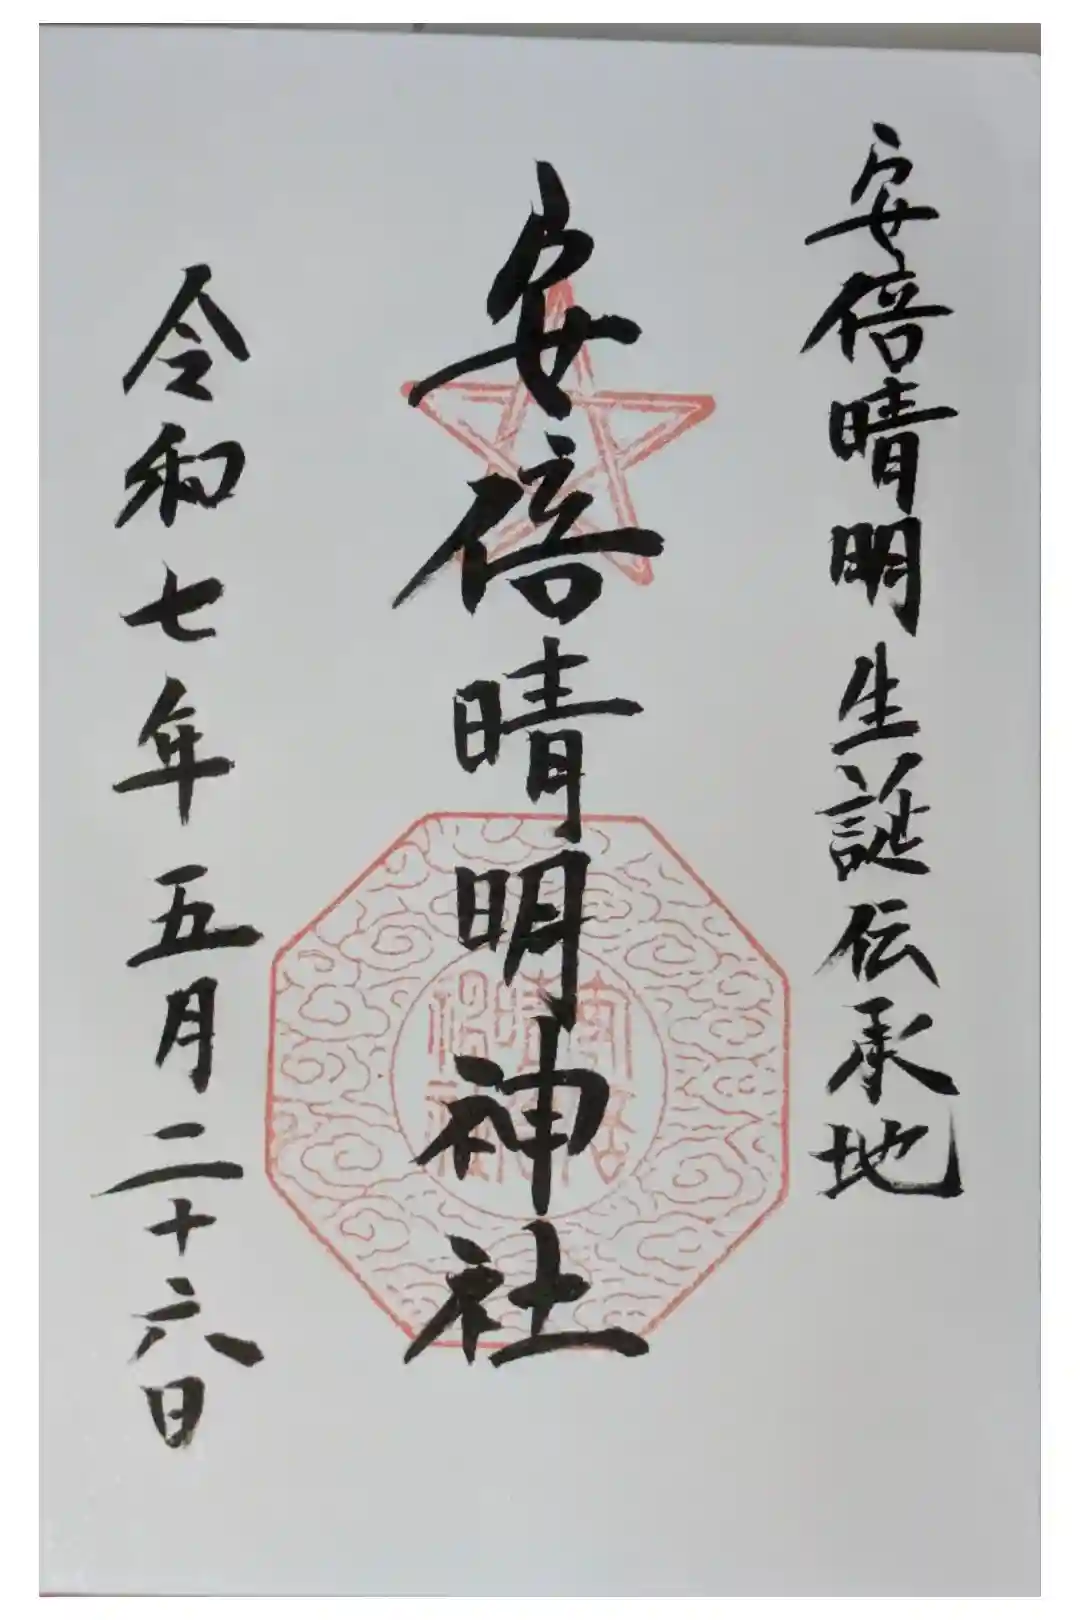 安倍晴明生誕伝承地
安倍晴明神社
令和七年五月二十六日